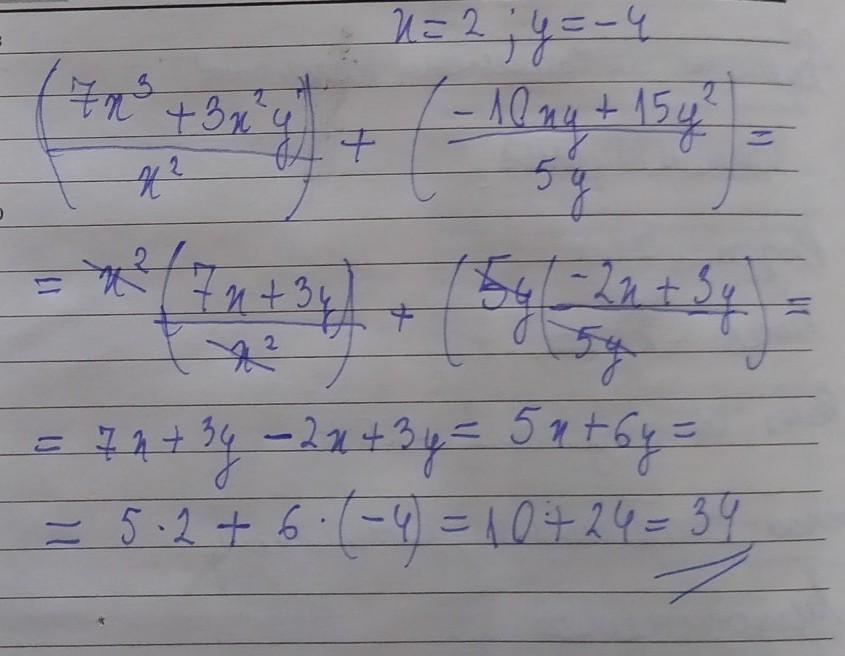 x = 2 ; y = -4
(7x³ + 3x²y / x²) + (-10xy + 15y² / 5y) =
= x² (7x + 3y / x²) + (5y (-2x + 3y / 5y) =
= 7x + 3y - 2x + 3y = 5x + 6y =
= 5 · 2 + 6 · (-4) = 10 + 24 = 34